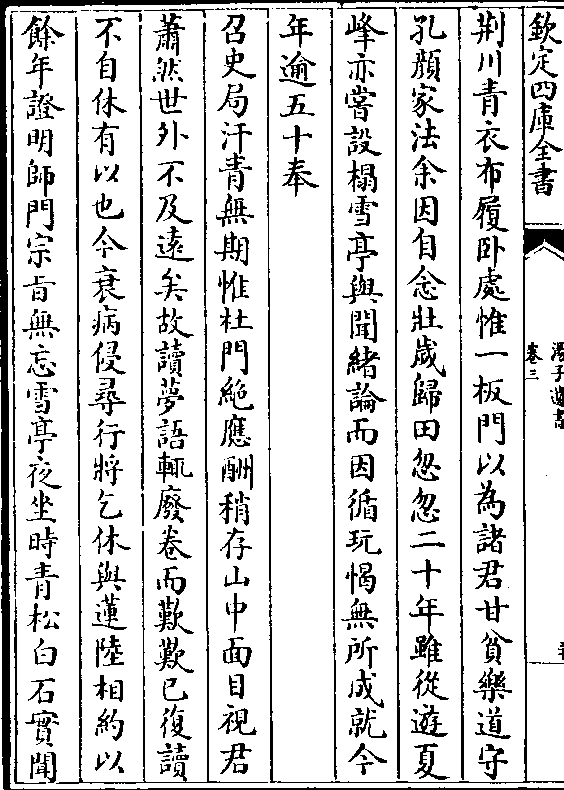 欽定四庫全書
湯子遺書
卷三
荆川青衣布履卧處惟一板門以為諸君甘貧樂道守
孔顔家法余因自念壯歲歸田忽忽二十年雖從遊夏
峰亦嘗設榻雪亭與聞緒論而因循玩愒無所成就今
年逾五十奉
召史局汗青無期惟杜門絶應酬稍存山中面目視君
蕭然世外不及遠矣故讀夢語輒廢卷而歎歎已復讀
不自休有以也今衰病侵尋行將乞休與蓮陸相約以
餘年證明師門宗旨無忘雪亭夜坐時青松白石實聞